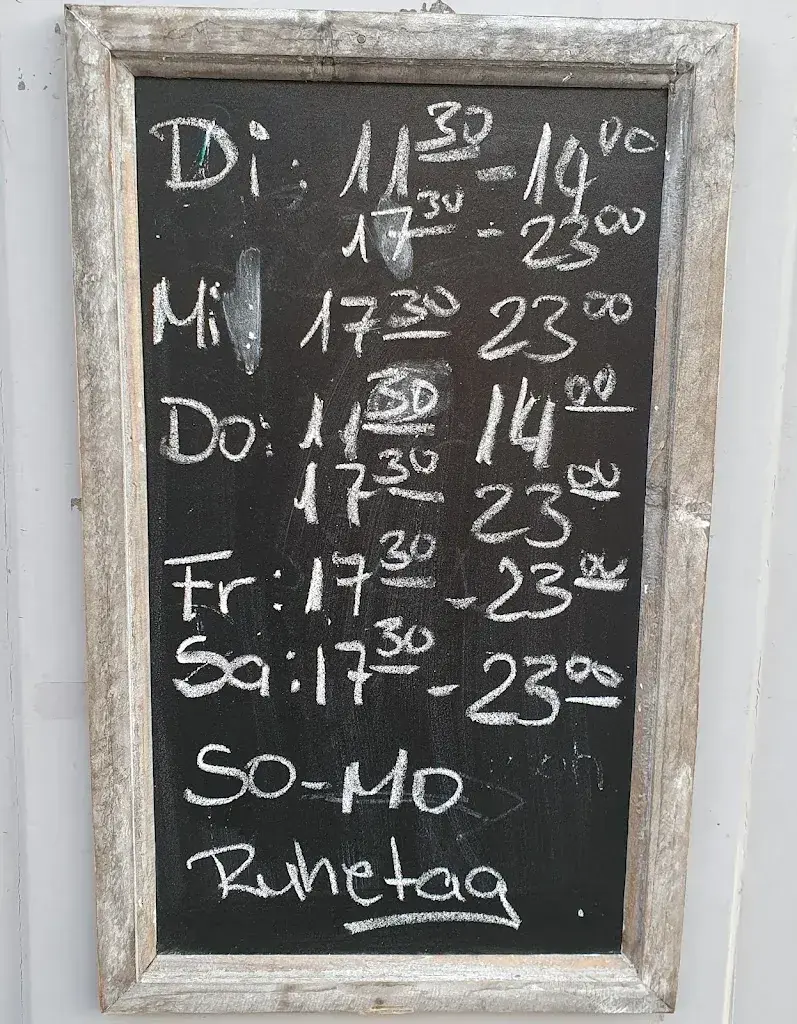 Di: 11³⁰ - 14⁰⁰
17³⁰ - 23⁰⁰
Mi: 17³⁰ 23⁰⁰
Do: 11³⁰ 14⁰⁰
17³⁰ 23⁰⁰
Fr: 17³⁰ - 23⁰⁰
Sa: 17³⁰ - 23⁰⁰
SO-MO
Ruhetag